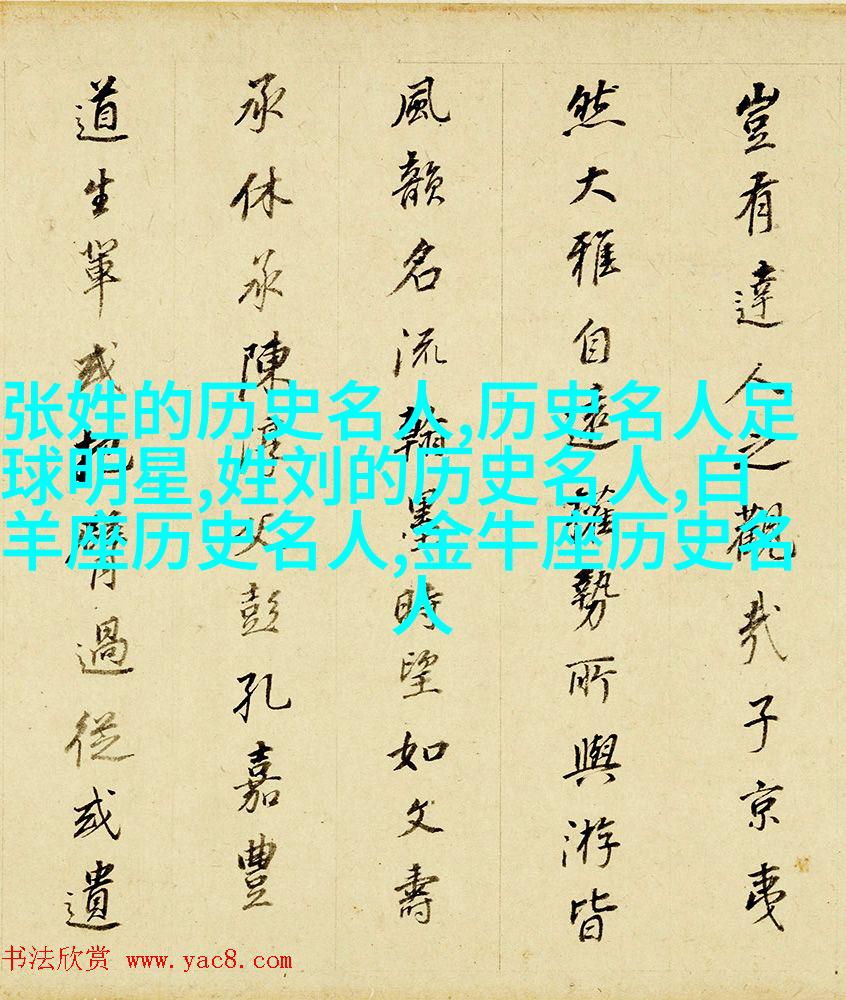 豈有達人之觀哉子京夷
然大雅自遠權勢所與游皆
風韻名流翰墨時望如文壽
承休承陳淳父彭孔嘉豐
道生輩或把臂過從或遺
张姓的历史名人,历史名人足
球明星,姓刘的历史名人,白
羊座历史名人,金牛座历史名
人
书法欣赏 www.yac8.com